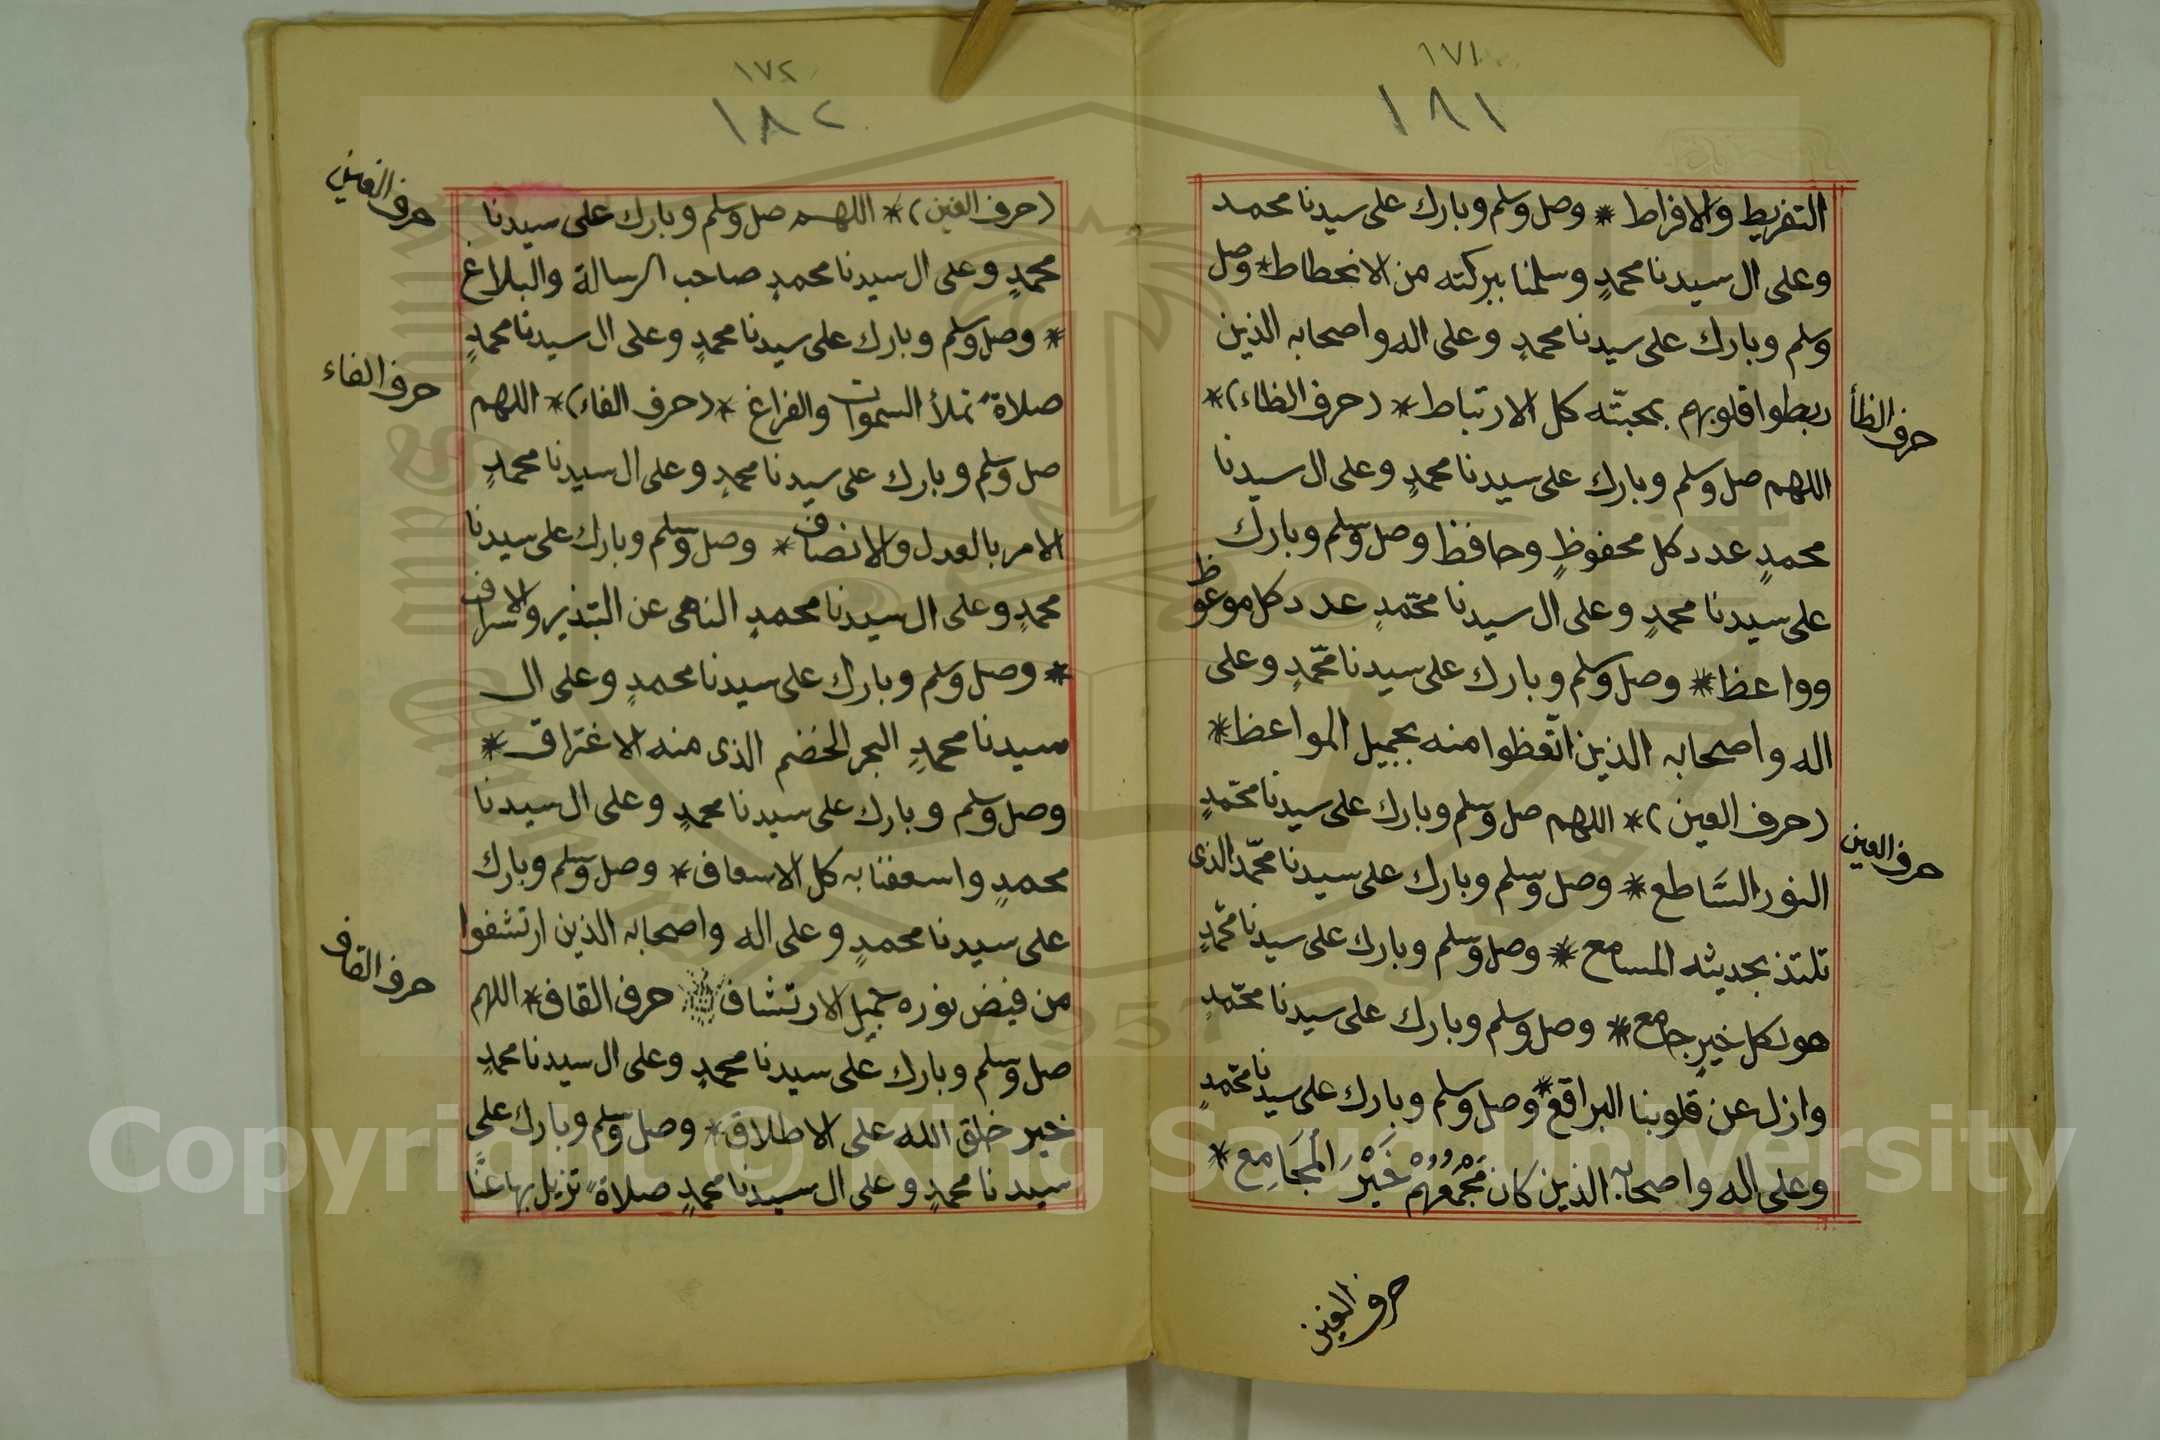 ١٧١
١٨١
التفريط والافراط * وصل وسلم وبارك على سيدنا محمد
وعلى ال سيدنا محمدٍ وسلمنا ببركته من الانحطاط * وصل
وسلم وبارك على سيدنا محمدٍ وعلى اله واصحابه الذين
ربطوا قلوبهم بمحبّته كل الارتباط * (حرف الظاء) *
حرف الظأ
اللهم صل وسلم وبارك على سيدنا محمدٍ وعلى ال سيدنا
محمدٍ عدد كل محفوظٍ وحافظ وصل وسلم وبارك
على سيدنا محمدٍ وعلى ال سيدنا محمّدٍ عدد كل موعوظ
وواعظا * وصل وسلم وبارك على سيدنا محمّدٍ وعلى
اله واصحابه الذين اتّعظوا منه بجميل المواعظا *
(حرف العين) * اللهم صل وسلم وبارك على سيدنا محمّدٍ
حرف العين
النور السَّاطع * وصل وسلم وبارك على سيدنا محمّد الذى
تلتذ بحديثه المسامع * وصل وسلم وبارك على سيدنا محمّدٍ
هو لكل خيرٍ جامع * وصل وسلم وبارك على سيدنا محمّدٍ
وازل عن قلوبنا البراقع * وصل وسلم وبارك على سيدنا محمّدٍ
وعلى اله واصحابه الذين كان مَجْمَعُهُمْ خَيْرَ الْمَجَامِع *
حرف الغين
١٧٢
١٨٢
(حرف الغين) * اللهم صل وسلم وبارك على سيدنا
حرف الغين
محمدٍ وعلى ال سيدنا محمدٍ صاحب الرسالة والبلاغ
* وصل وسلم وبارك على سيدنا محمدٍ وعلى ال سيدنا محمدٍ
صلاةً تملأ السموات والفراغ * (حرف الفاء) * اللهم
حرف الفاء
صل وسلم وبارك على سيدنا محمدٍ وعلى ال سيدنا محمدٍ
الامر بالعدل والانصاف * وصل وسلم وبارك على سيدنا
محمدٍ وعلى ال سيدنا محمدٍ الناهى عن التبذير والاسراف
* وصل وسلم وبارك على سيدنا محمدٍ وعلى ال
سيدنا محمدٍ البحر الخضم الذى منه الاغتراف *
وصل وسلم وبارك على سيدنا محمدٍ وعلى ال سيدنا
محمدٍ واسعفنا به كل الاسعاف * وصل وسلم وبارك
على سيدنا محمدٍ وعلى اله واصحابه الذين ارتشفوا
من فيض نوره جميل الارتشاف حرف القاف * اللهم
حرف القاف
صل وسلم وبارك على سيدنا محمدٍ وعلى ال سيدنا محمدٍ
خير خلق الله على الاطلاق * وصل وسلم وبارك على
سيدنا محمدٍ وعلى ال سيدنا محمدٍ صلاةً تزيل بها عنَّا
Copyright © King Saud University
1957